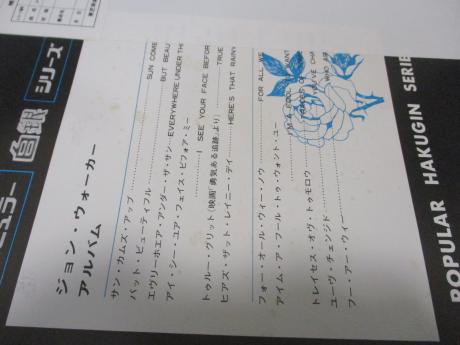 ピュラー 白銀 シリーズ
ジョン・ウォーカー
アルバム
サン・カムズ・アップ……SUN COME
バット・ビューティフル……BUT BEAU
エヴリーホエア・アンダー・ザ・サン…EVERYWHERE UNDER TH
アイ・シー・ユア・フェイス・ビフォア・ミー
……I SEE YOUR FACE BEFOR
トゥルー・グリット(映画「勇気ある追跡」より)……TRUE
ヒアズ・ザット・レイニー・デイ……HERE'S THAT RAINY
フォー・オール・ウィー・ノウ……FOR ALL WE
アイム・ア・フール・トゥ・ウォント・ユー
……I'M A FOOL TO WANT
トレイセス・オヴ・トゥモロウ……TRACES OF
ユーヴ・チェンジド……YOU'VE CHA
フー・アー・ウィー……WHO ARE
POPULAR HAKUGIN SERIE